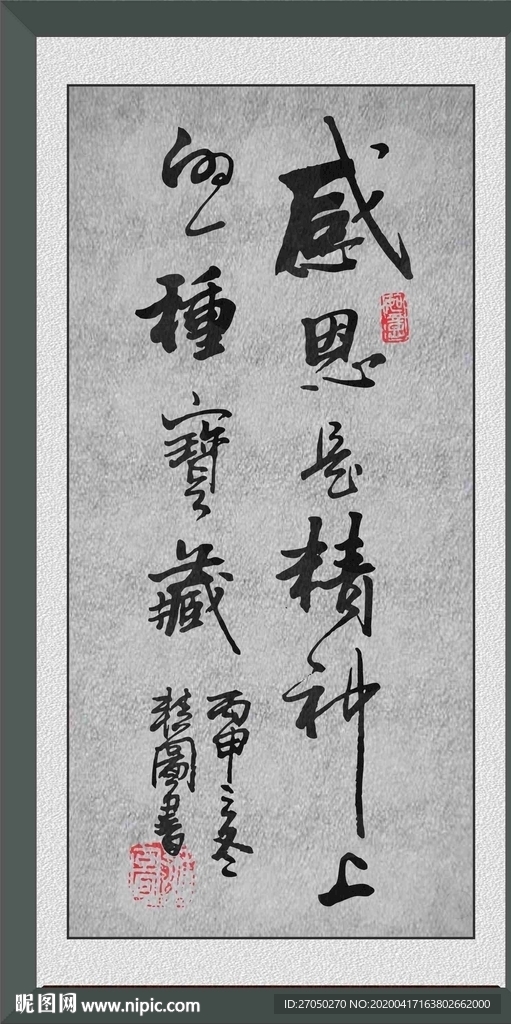 感恩是精神上
的一種寶藏
丙申之冬
圖書
昵图网 www.nipic.com
ID:27050270 NO:20200417163802662000